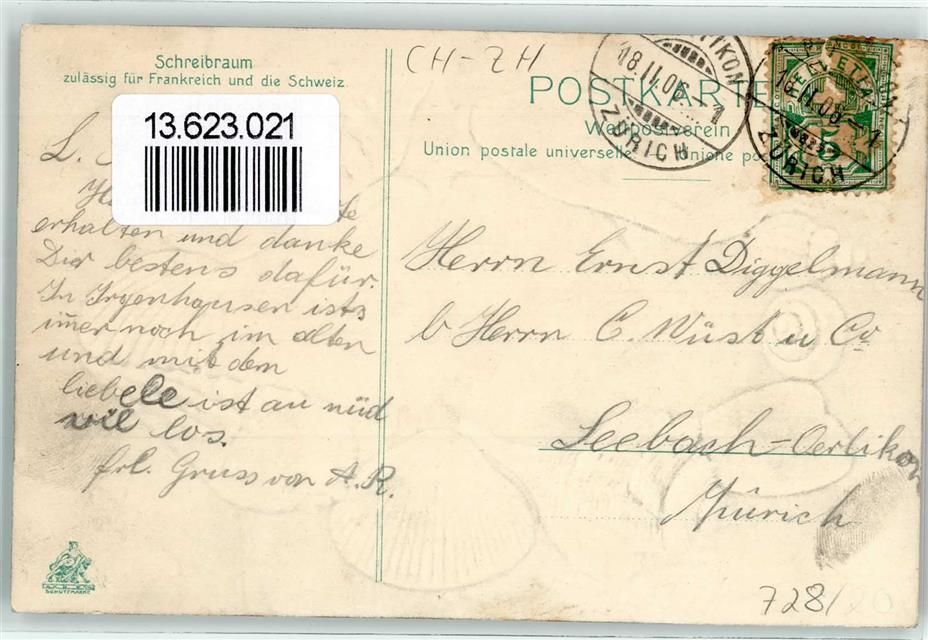 Schreibraum
zulässig für Frankreich und die Schweiz.
13.623.021
L.
erhalten und danke
Dir bestens dafür.
In Irgenhausen ists
imer noch im alten
und mit dem
liebele ist au nüd
viel los.
frl. Gruss von A. R.
SCHUTZMARKE
CH-ZH
POSTKARTE
Weltpostverein
Union postale universelle
18.II.06. 1
ZÜRICH
HELVETIA
5
18.II.06 1
ZÜRICH
Herrn Ernst Diggelmann
b Herrn C. Wüst u Co
Seebach-Oerlikon
Zürich
728/20